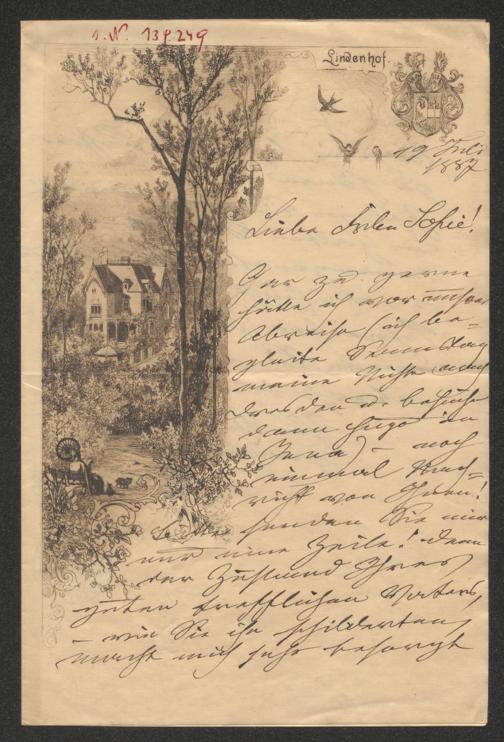 I. N. 139249
Lindenhof.
19 Juli
1887
Liebe Frln Sofie!
Gar zu gerne
hätte ich vor unserer
Abreise (ich be-
gleite Samstag
meine Nichte nach
Dresden u. besuche
dann Hugo in
Jena) – noch
einmal Nach-
richt von Ihnen!
senden Sie mir
nur eine Zeile! denn
der Zustand Ihres
guten trefflichen Vaters,
– wie Sie ihn schilderten,
macht mich sehr besorgt